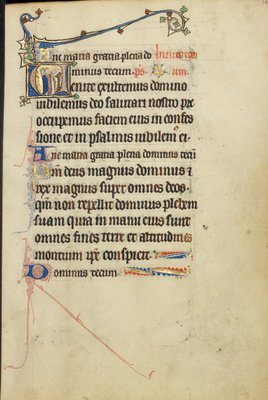 Aue maria gratia plena do Inuitatori
minus tecum. ps. um.
Uenite exultemus domino
iubilemus deo salutari nostro pre
occupemus faciem eius in confes
sione et in psalmis iubilem ei.
Aue maria gratia plena dominus tecū
Qm̄ deus magnus dominus et
rex magnus super omnes deos.
qm̄ non repellit dominus plebem
suam quia in manu eius sunt
omnes fines terre et altitudines
montium ip̄e conspicit.
Dominus tecum.